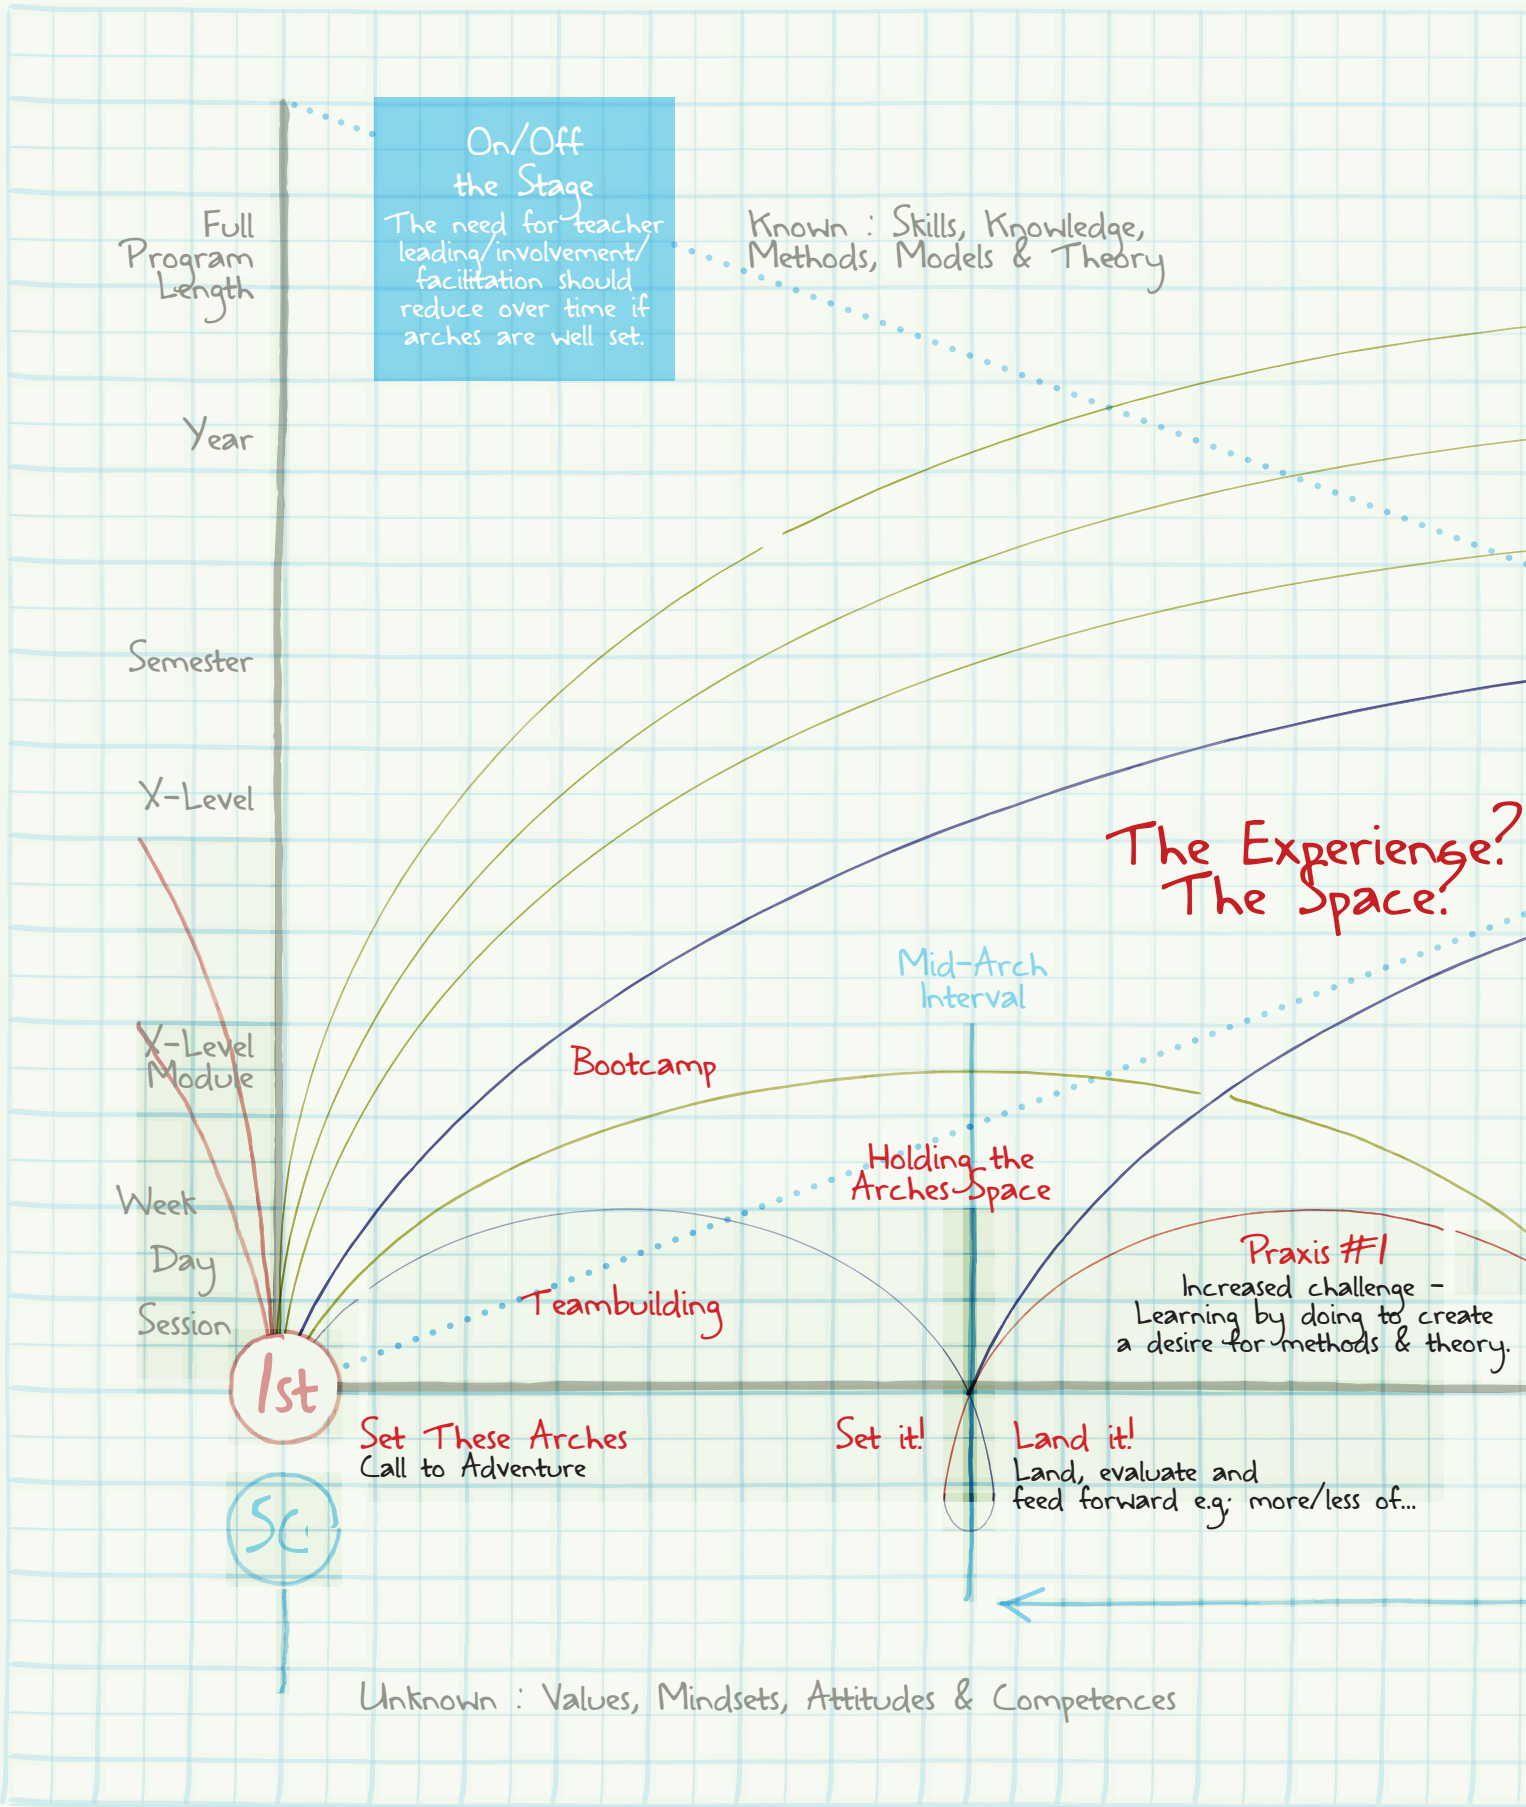 On/Off
the Stage
The need for teacher
leading/involvement/
facilitation should
reduce over time if
arches are well set.
Known : Skills, Knowledge,
Methods, Models & Theory
Full
Program
Length
Year
Semester
X-Level
The Experience?
The Space?
Mid-Arch
Interval
X-Level
Module
Bootcamp
Holding the
Arches Space
Week
Day
Session
Teambuilding
Praxis #1
Increased challenge -
Learning by doing to create
a desire for methods & theory.
1st
Set These Arches
Call to Adventure
Set it!
Land it!
Land, evaluate and
feed forward e.g; more/less of...
Sc
Unknown : Values, Mindsets, Attitudes & Competences